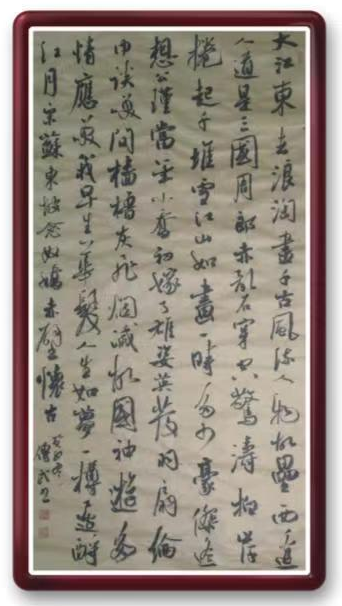 大江東去浪淘盡千古風流人物故壘西邊
人道是三國周郎赤亂石穿空驚濤拍岸
捲起千堆雪江山如畫一時多少豪傑遙
想公瑾當年小喬初嫁了雄姿英發羽扇綸
巾談笑間檣櫓灰飛烟滅故國神遊多
情應笑我早生華髮人生如夢一樽還酹
江月宋蘇東坡念奴嬌赤壁懷古